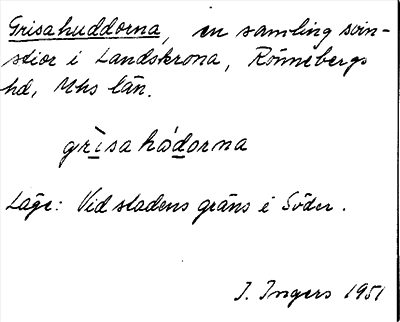 Grisahuddorna, en samling svin-
stior i Landskrona, Rönnebergs
hd, Mhs län.
grìsa hádorna
Läge: Vid stadens gräns i Söder.
I. Ingers 1951